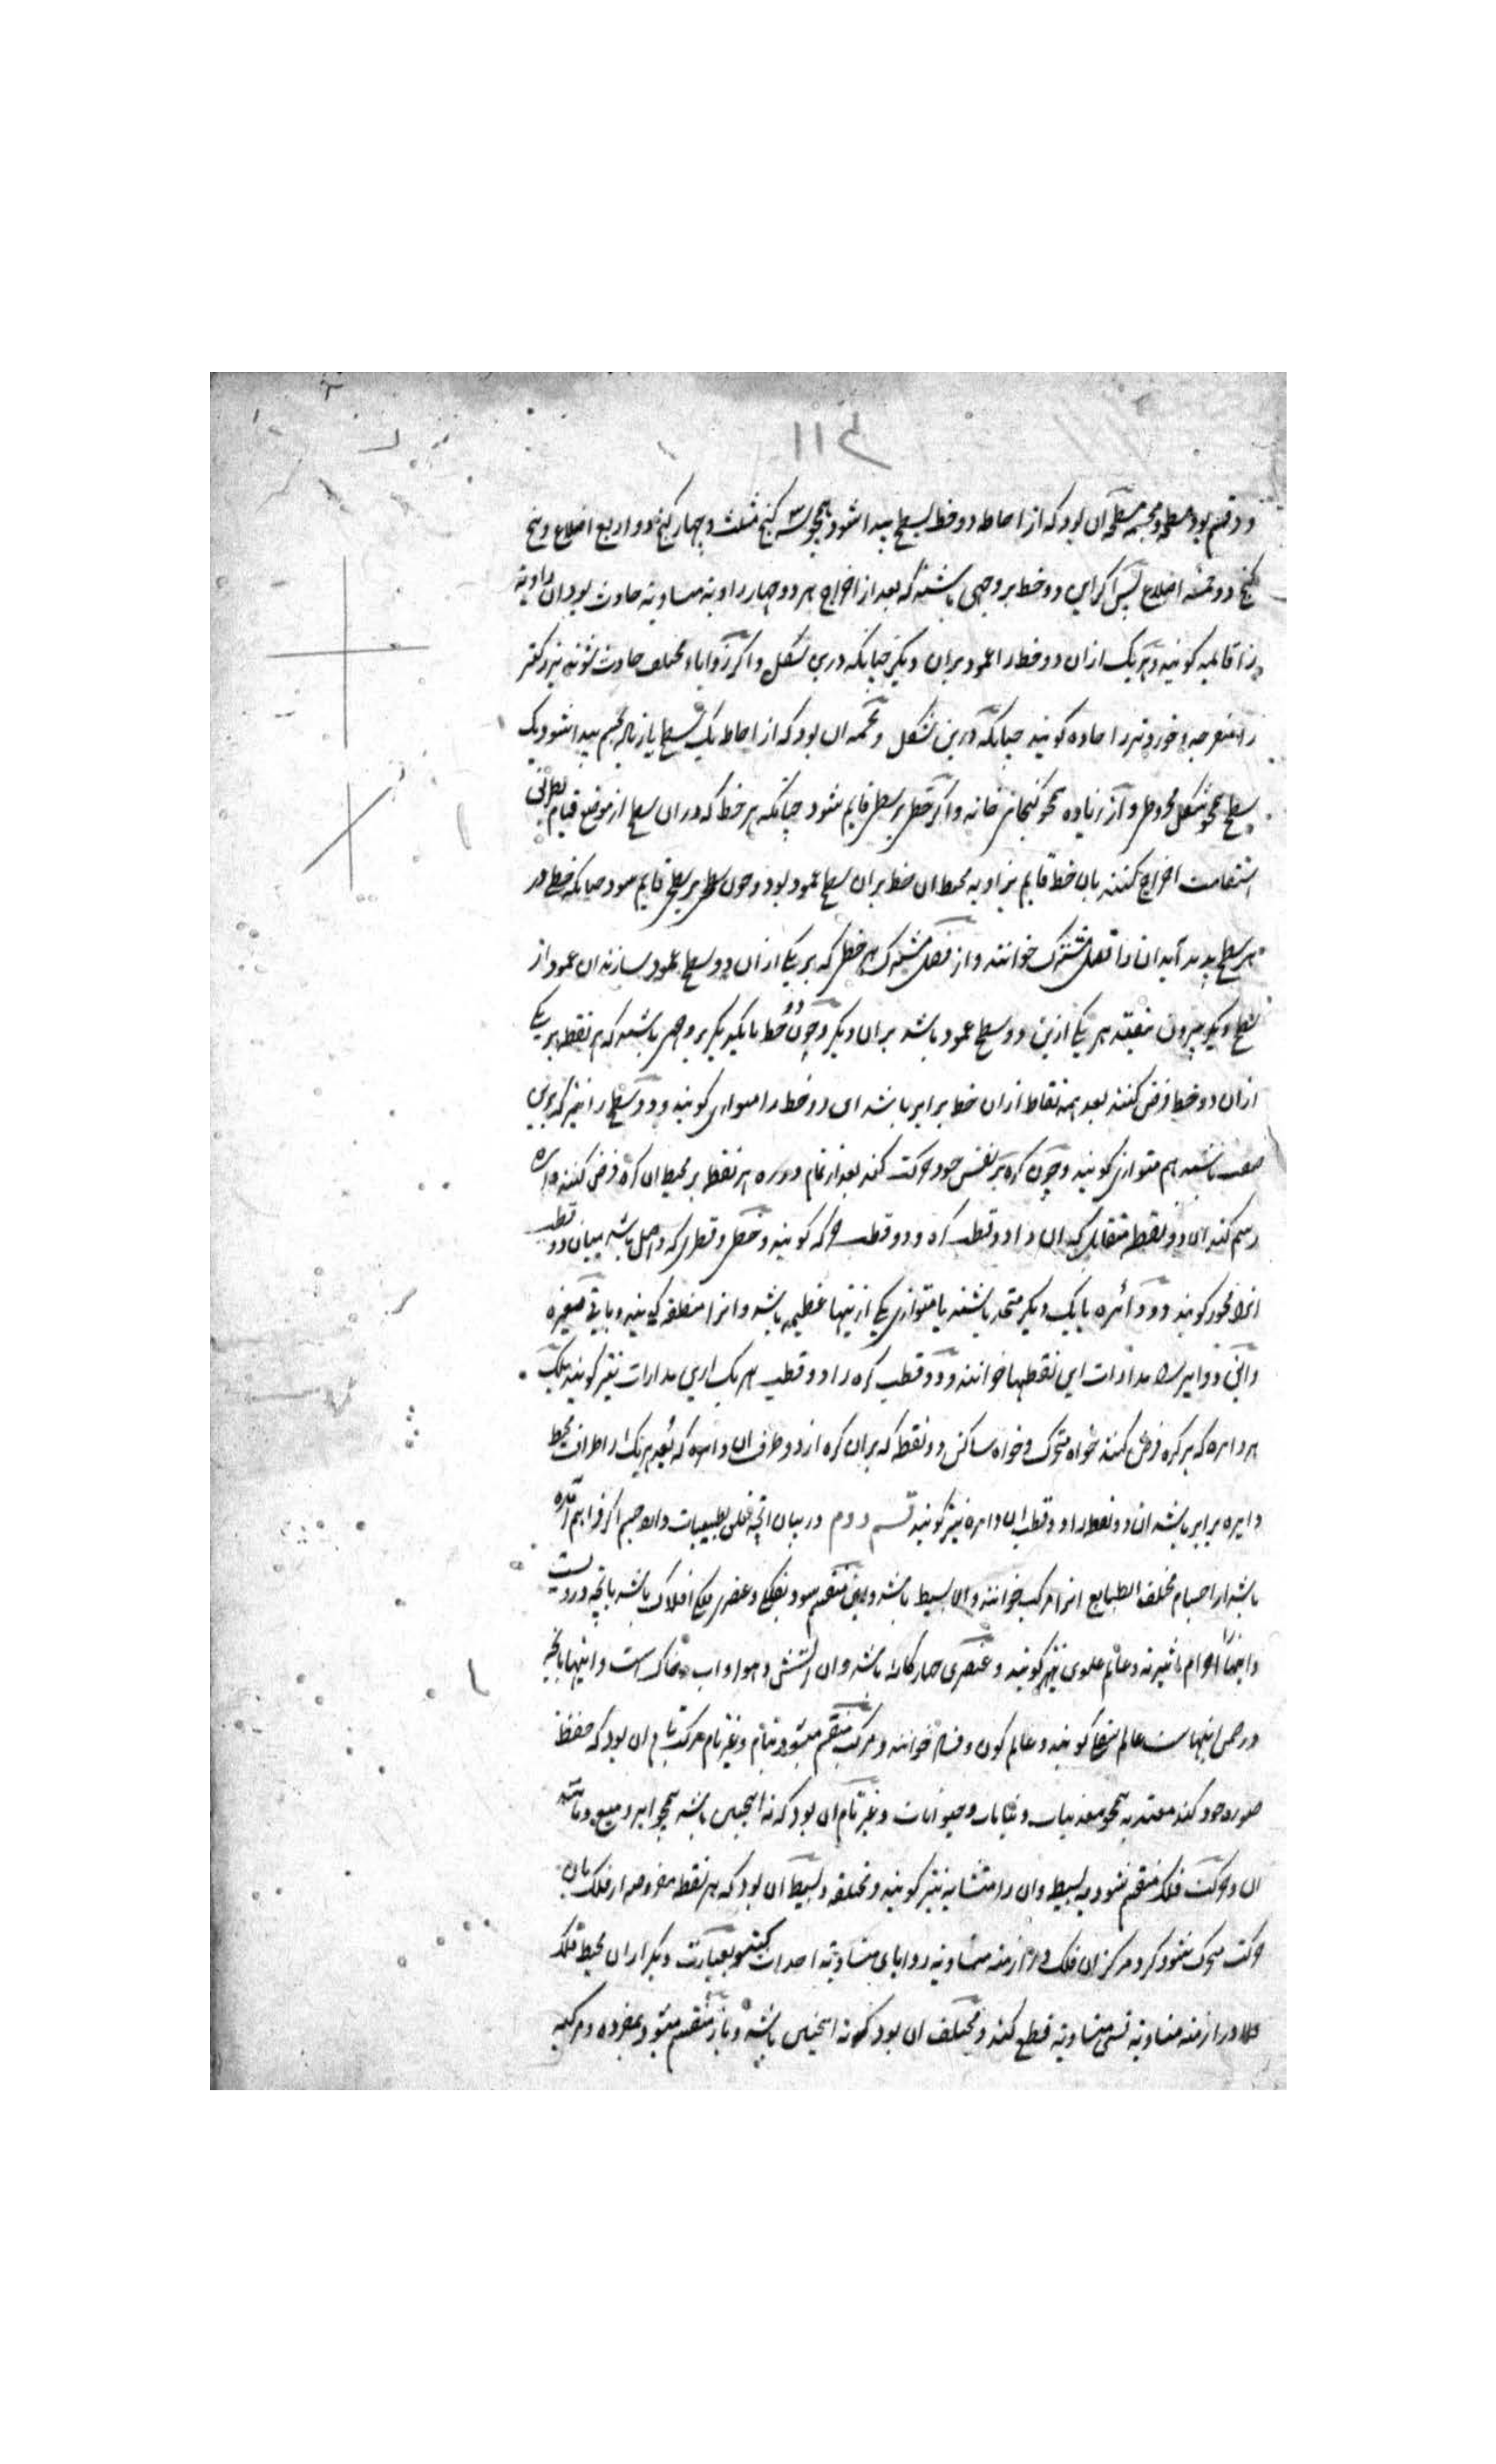 ۱۱۴
دو قسم بود مسطحه و مجسمه مسطحه آن بود که از احاطه دو خط بسطح پیدا شود همچو سه کنج مثلث و چهار کنج ذو اربع اضلاع و پنج
کنج ذو خمسه اضلاع پس اگر این دو خط بر وجهی باشند که بعد از اخراج هر دو چهار زاویه متساویه حادث بود آن زاویه
را قایمه گویند و هر یک ازان دو خط را عمود بران دیگر چنانکه درین شکل و اگر زوایاء مختلف حادث شوند بزرگتر
را منفرجه و خوردتر را حاده گویند چنانکه درین شکل و مجسمه ان بود که از احاطه یک سطح یا زیاده بجسم پیدا شود یک
سطح همچو شکل مخروط و از زیاده همچو کنجهای خانه و اگر خطی بر سطحی قایم شود چنانکه هر خط که دران سطح از موضع قیام بطریق
استقامت اخراج کنند بان خط قایم بزاویه محیط ان خط بران سطح عمود بود و چون سطحی بر سطحی قایم شود چنانکه خطی در
هر سطح پدید آید ان را فصل مشترک خوانند و از فصل مشترک هر خطی که بر یکی ازان دو سطح عمود سازند ان عمود از
سطح دیگر بیرون نیفتد هر یکی ازین دو سطح عمود باشد بران دیگر و چون دو خط با یکدیگر بر وجهی باشند که هر نقطه بر یکی
ازان دو خط فرض کنند بعد همه نقاط ازان خط برابر باشد این دو خط را متوازی گویند و دو سطح را نیز که برین
صفت باشند هم متوازی گویند و چون کره بر نفس خود حرکت کند بعد از تمام دوره هر نقطه بر محیط ان کره فرض کنند دایره
رسم کند الا دو نقطه متقابل که ان را دو قطب کره و دو قطب حرکه گویند و خطی و قطری که واصل باشد میان دو قطب
انرا محور گویند و دو دائره با یک دیگر متحد باشند یا متوازی یکی ازینها عظیمه باشد و انرا منطقه گویند و باقی صغیره
و این دوایر را مدارات این نقطها خوانند و دو قطب کره را دو قطب هر یک ازین مدارات نیز گویند بلکه
هر دایره که بر کره فرض کنند خواه متحرک و خواه ساکن دو نقطه که بران کره از دو طرف ان دایره که بعد هر یک از اطراف محیط
دایره برابر باشد ان دو نقطه را دو قطب ان دایره نیز گویند قسم دوم در بیان انچه تعلق بطبیعیات دارد جسم اگر فراهم آمده
باشد از اجسام مختلف الطبایع انرا مرکب خوانند و الا بسیط باشد و این منقسم شود بفلکی و عنصری فلکی افلاک باشد بانچه دروست
و اینها را اجرام اثیریه و عالم علوی نیز گویند و عنصری چهارگانه باشد و ان آتش و هوا و اب و خاک است و اینها بانچه
در ضمن اینهاست عالم سفلی گویند و عالم کون و فساد خوانند و مرکب منقسم میشود بتام و غیر تام مرکب تام ان بود که حفظ
صوره خود کند معتد به همچو معدنیات و نباتات و حیوانات و غیر تام ان بود که نه اینچنین باشد همچو ابر و میغ و مانند
ان و حرکت فلک منقسم شود به بسیط و ان را متشابه نیز گویند و مختلفه و بسیط آن بود که هر نقطه مفروضه از فلک بان
حرکت متحرک شود گرد مرکز ان فلک در ازمنه متساویه زوایای متساویه احداث کند و بعبارت دیگر ازان محیط فلک
مثلا در ازمنه متساویه قسی متساویه قطع کند و مختلف ان بود که نه اینچنین باشد و باز منقسم میشود بمفرده و مرکبه